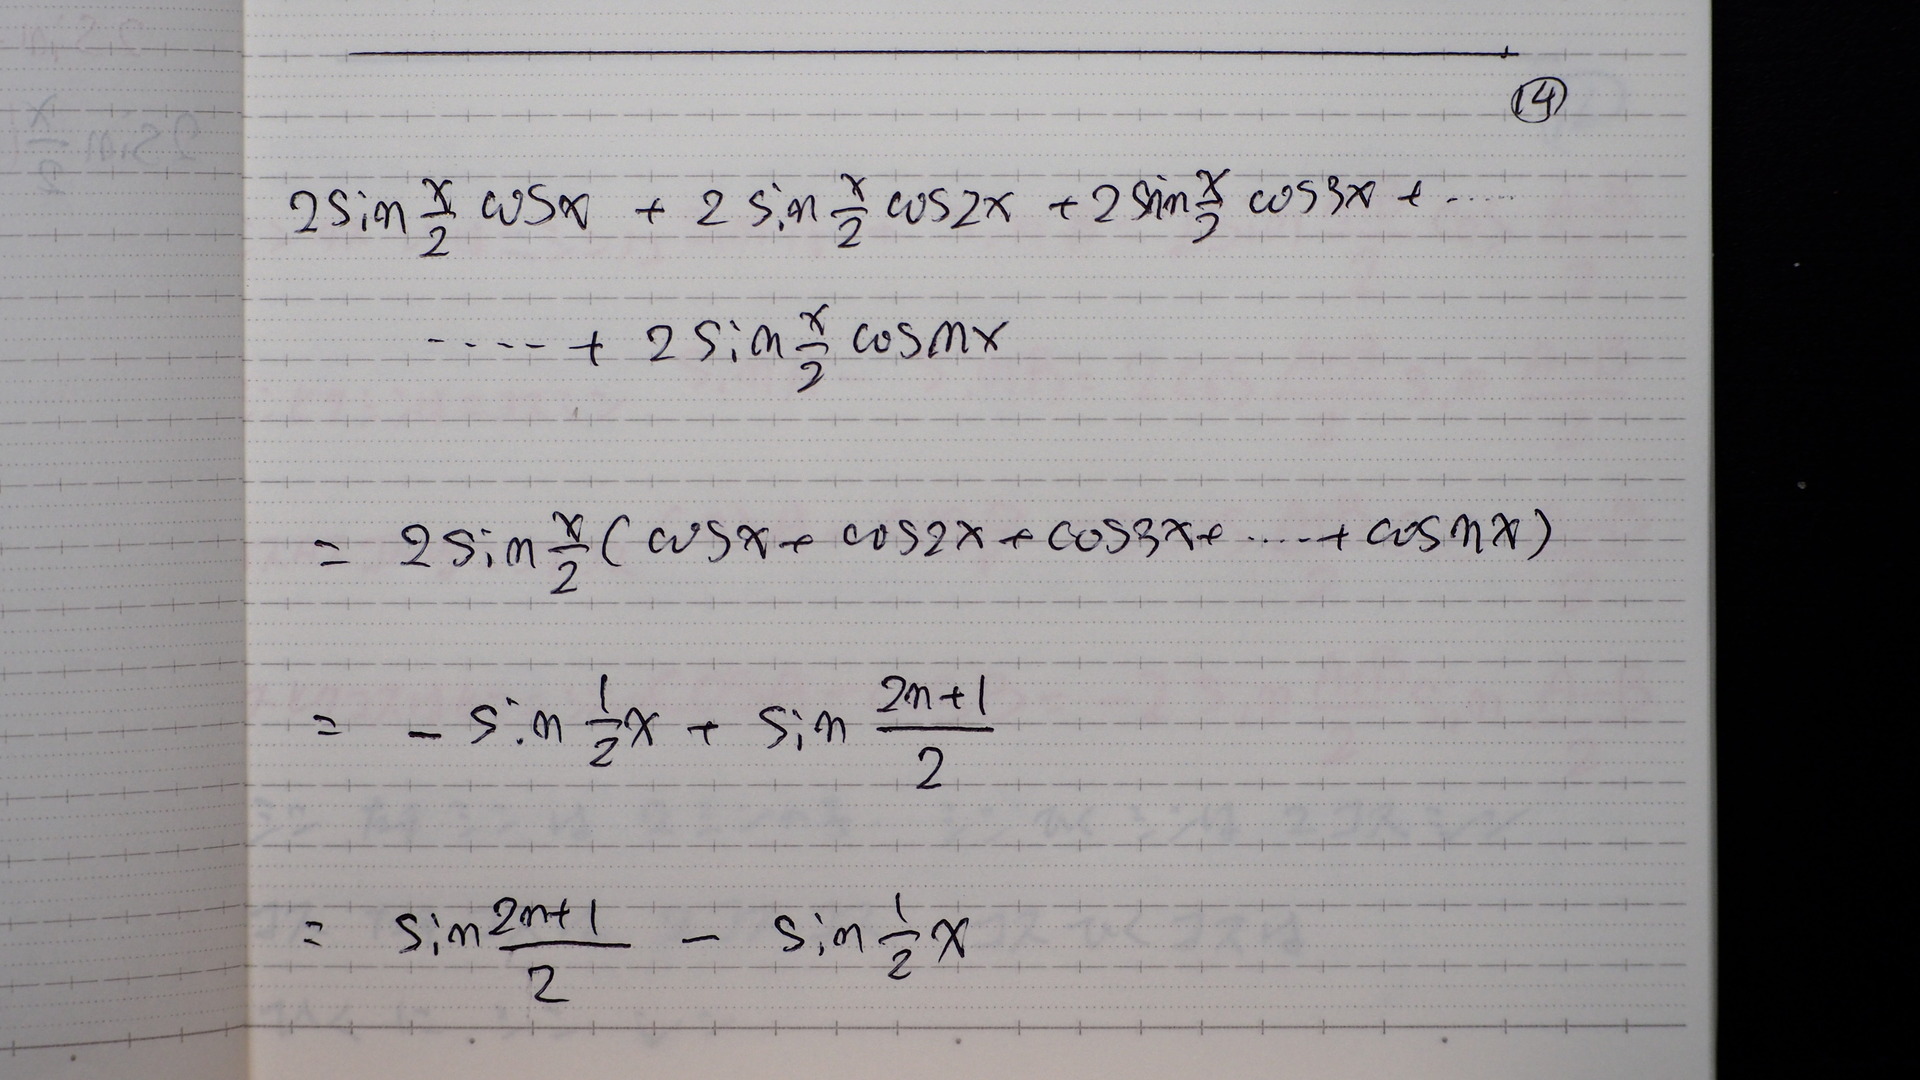 ⑭
2 sin x/2 cos x + 2 sin x/2 cos 2x + 2 sin x/2 cos 3x + ‥‥‥
‥‥‥ + 2 sin x/2 cos nx
= 2 sin x/2 ( cos x + cos 2x + cos 3x + ‥‥‥ + cos nx )
= - sin 1/2 x + sin (2n+1)/2
= sin (2n+1)/2 - sin 1/2 x